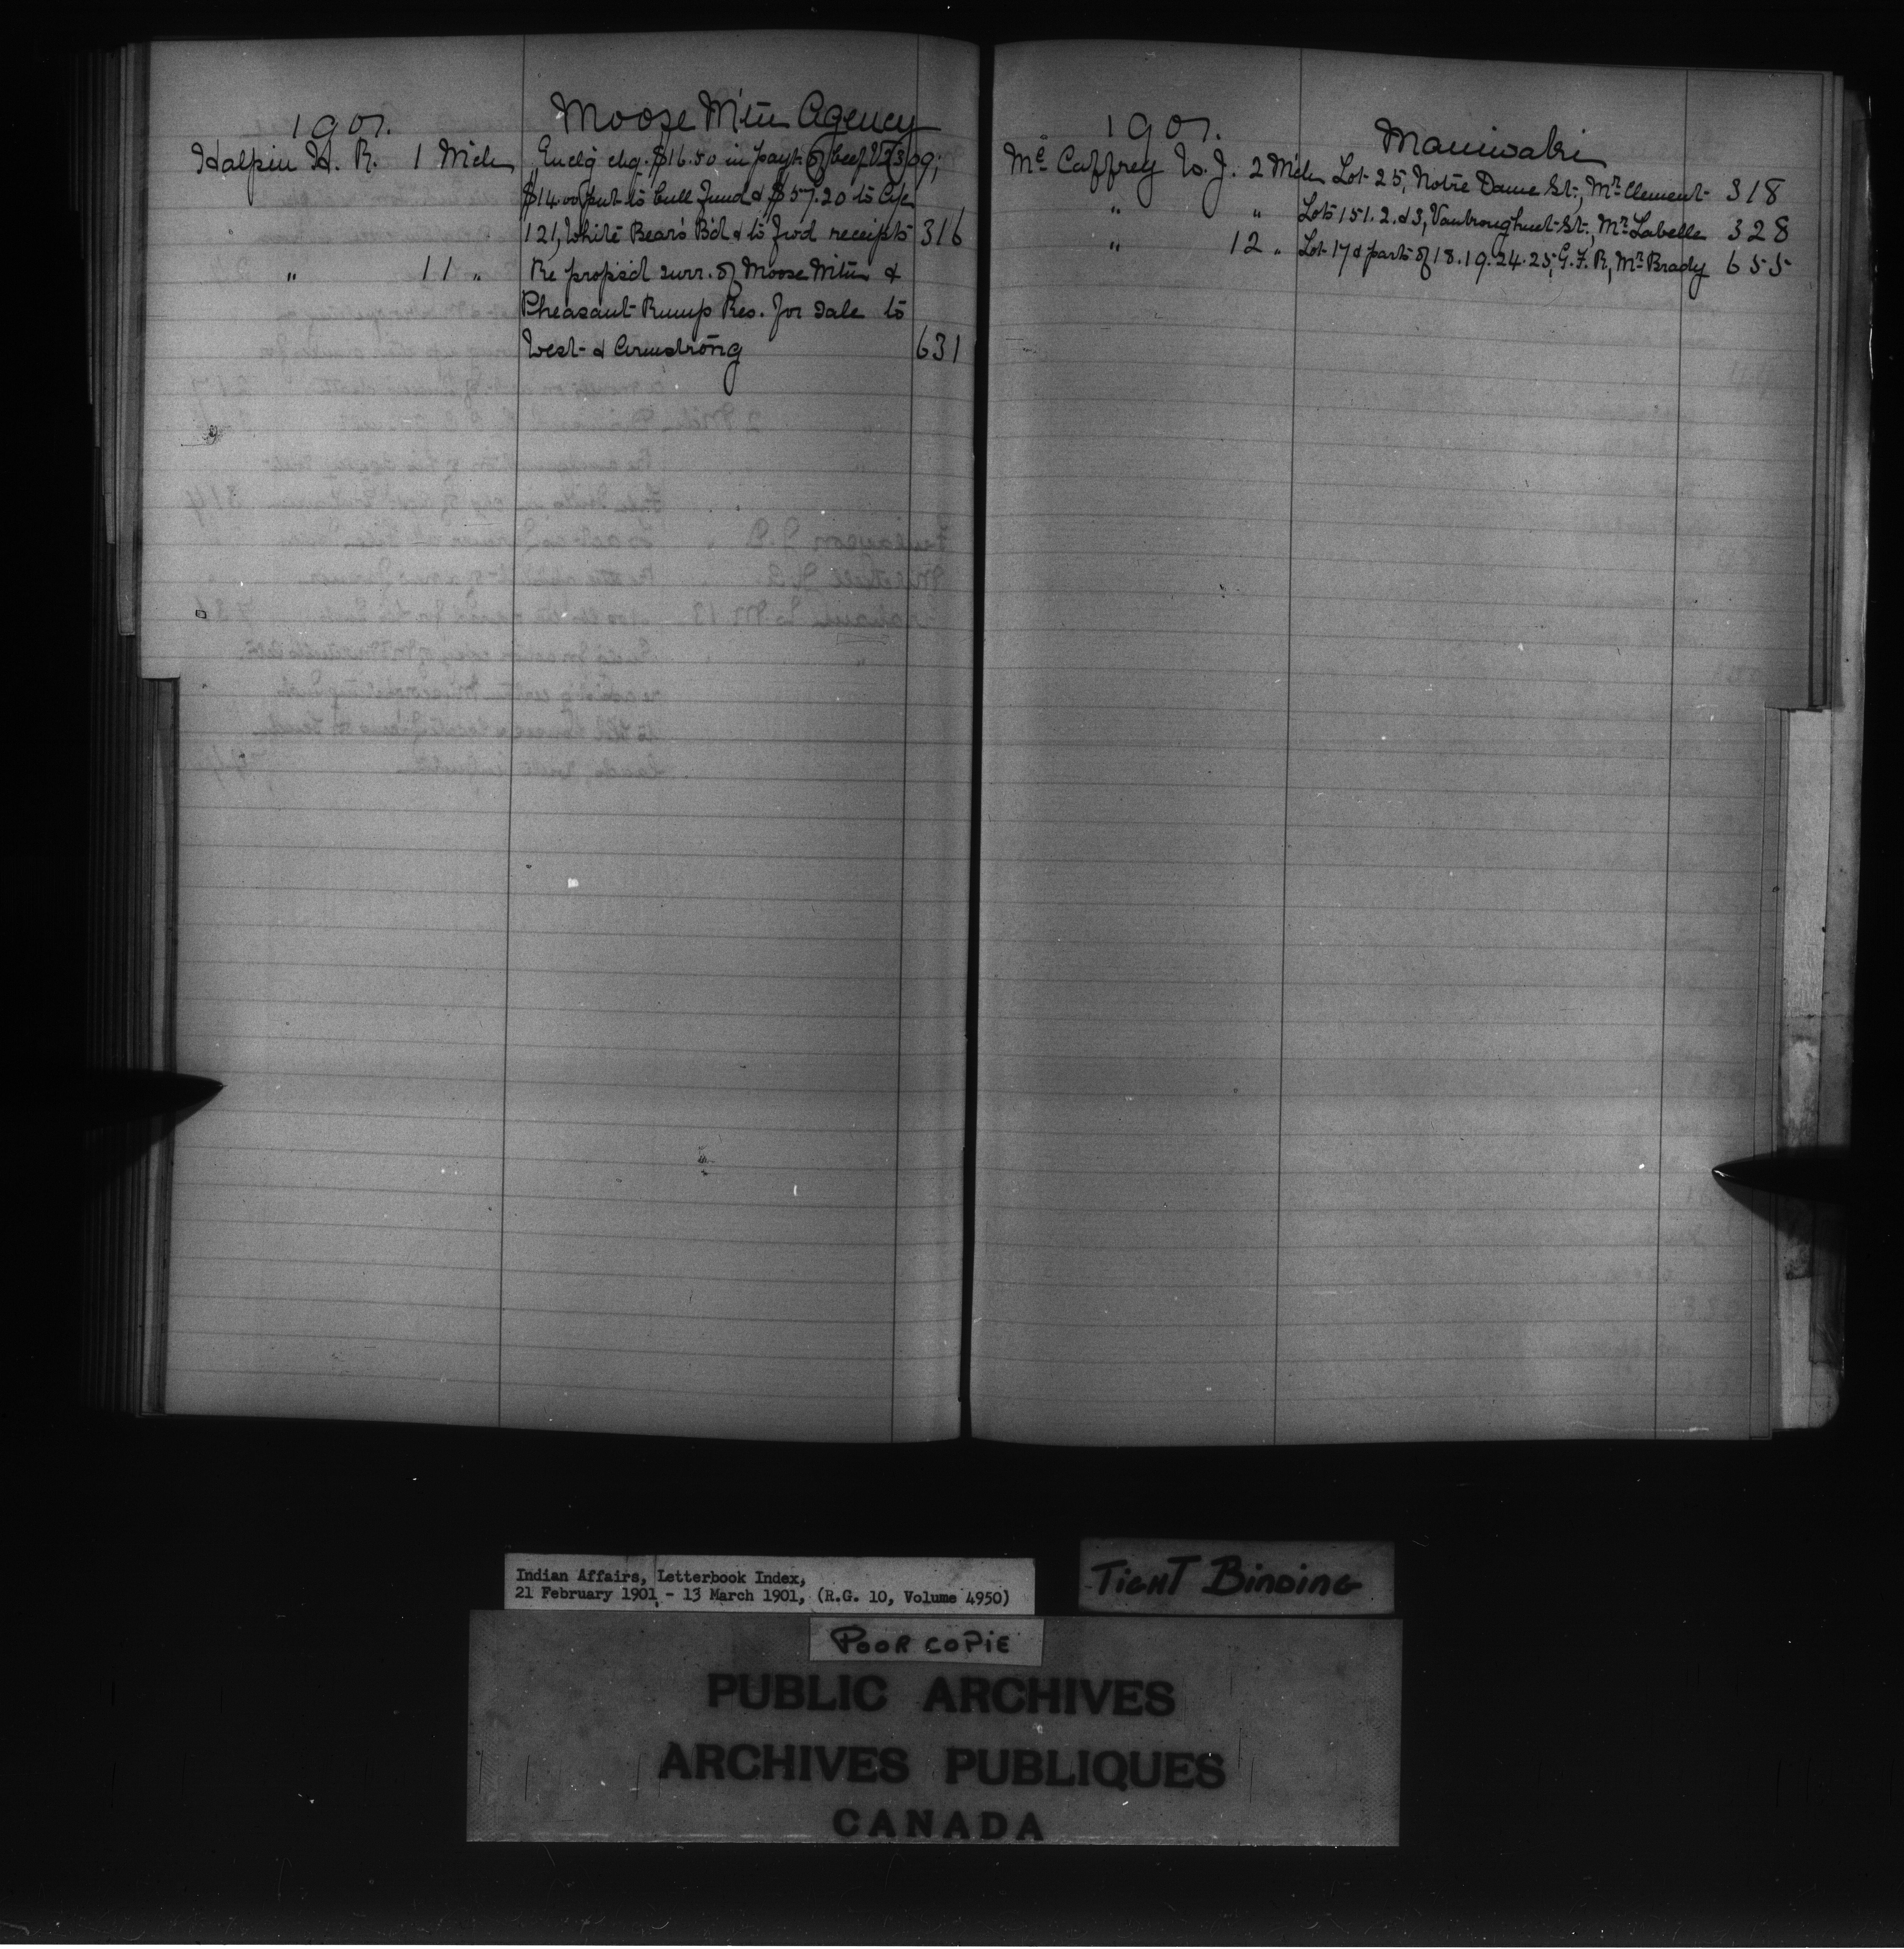 1901. Moose Mtn Agency
Halpin H. R. 1 Mch Encl'g chq. $16.50 in payt. of beef V 2309;
$14.00 put to bull fund & $57.20 to a/c
121, White Bear's B'd & to fwd receipts 316
" 11 " Re propos'd surr. of Moose Mtn &
Pheasant Rump Res. for sale to
West & Armstrong 631
1901. Maniwaki
Mc Caffrey W. J. 2 Mch Lot 25, Notre Dame St., Mr. Clement 318
" " Lots 151. 2. & 3, St., Mr. Labelle 328
" 12 " Lot 17 & parts of 18. 19. 24. 25, G. F. R, Mr. Brady 655
Indian Affairs, Letterbook Index,
21 February 1901 - 13 March 1901, (R.G. 10, Volume 4950)
TIGHT BINDING
POOR COPIE
PUBLIC ARCHIVES
ARCHIVES PUBLIQUES
CANADA